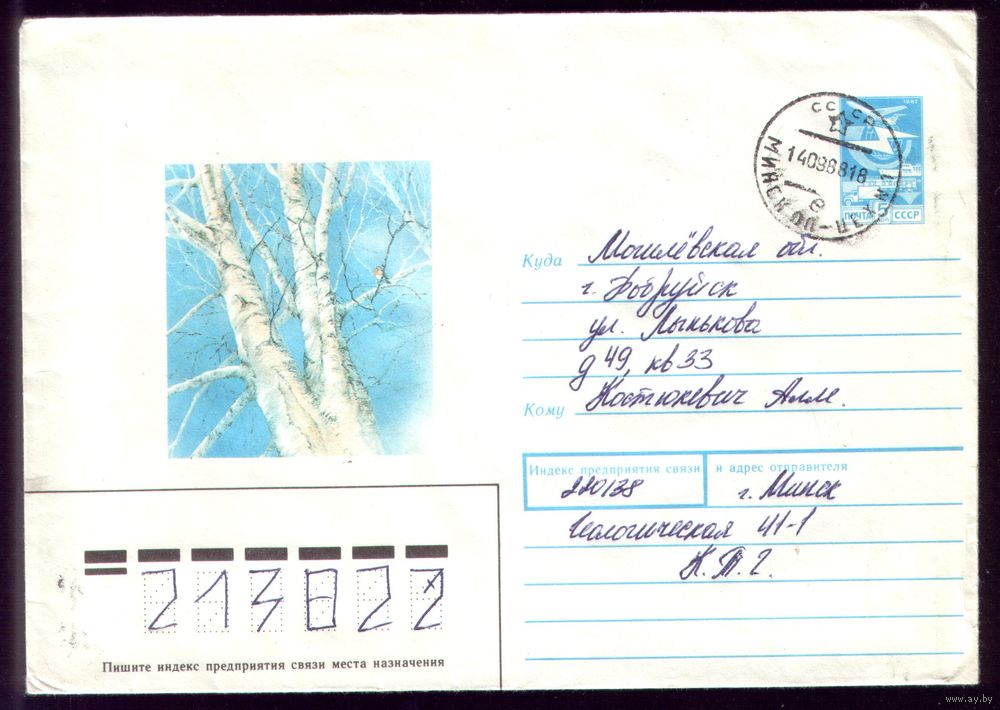 1982
ПОЧТА 5 КОП СССР
СССР
МИНСК
140988 18
е
Куда Могилёвская обл.
г. Бобруйск
ул. Лынькова
д 49, кв 33
Кому Костюкевич Алле.
Индекс предприятия связи и адрес отправителя
220138 г. Минск
Геологическая 41-1
К.Т.Г.
213822
Пишите индекс предприятия связи места назначения
www.ay.by